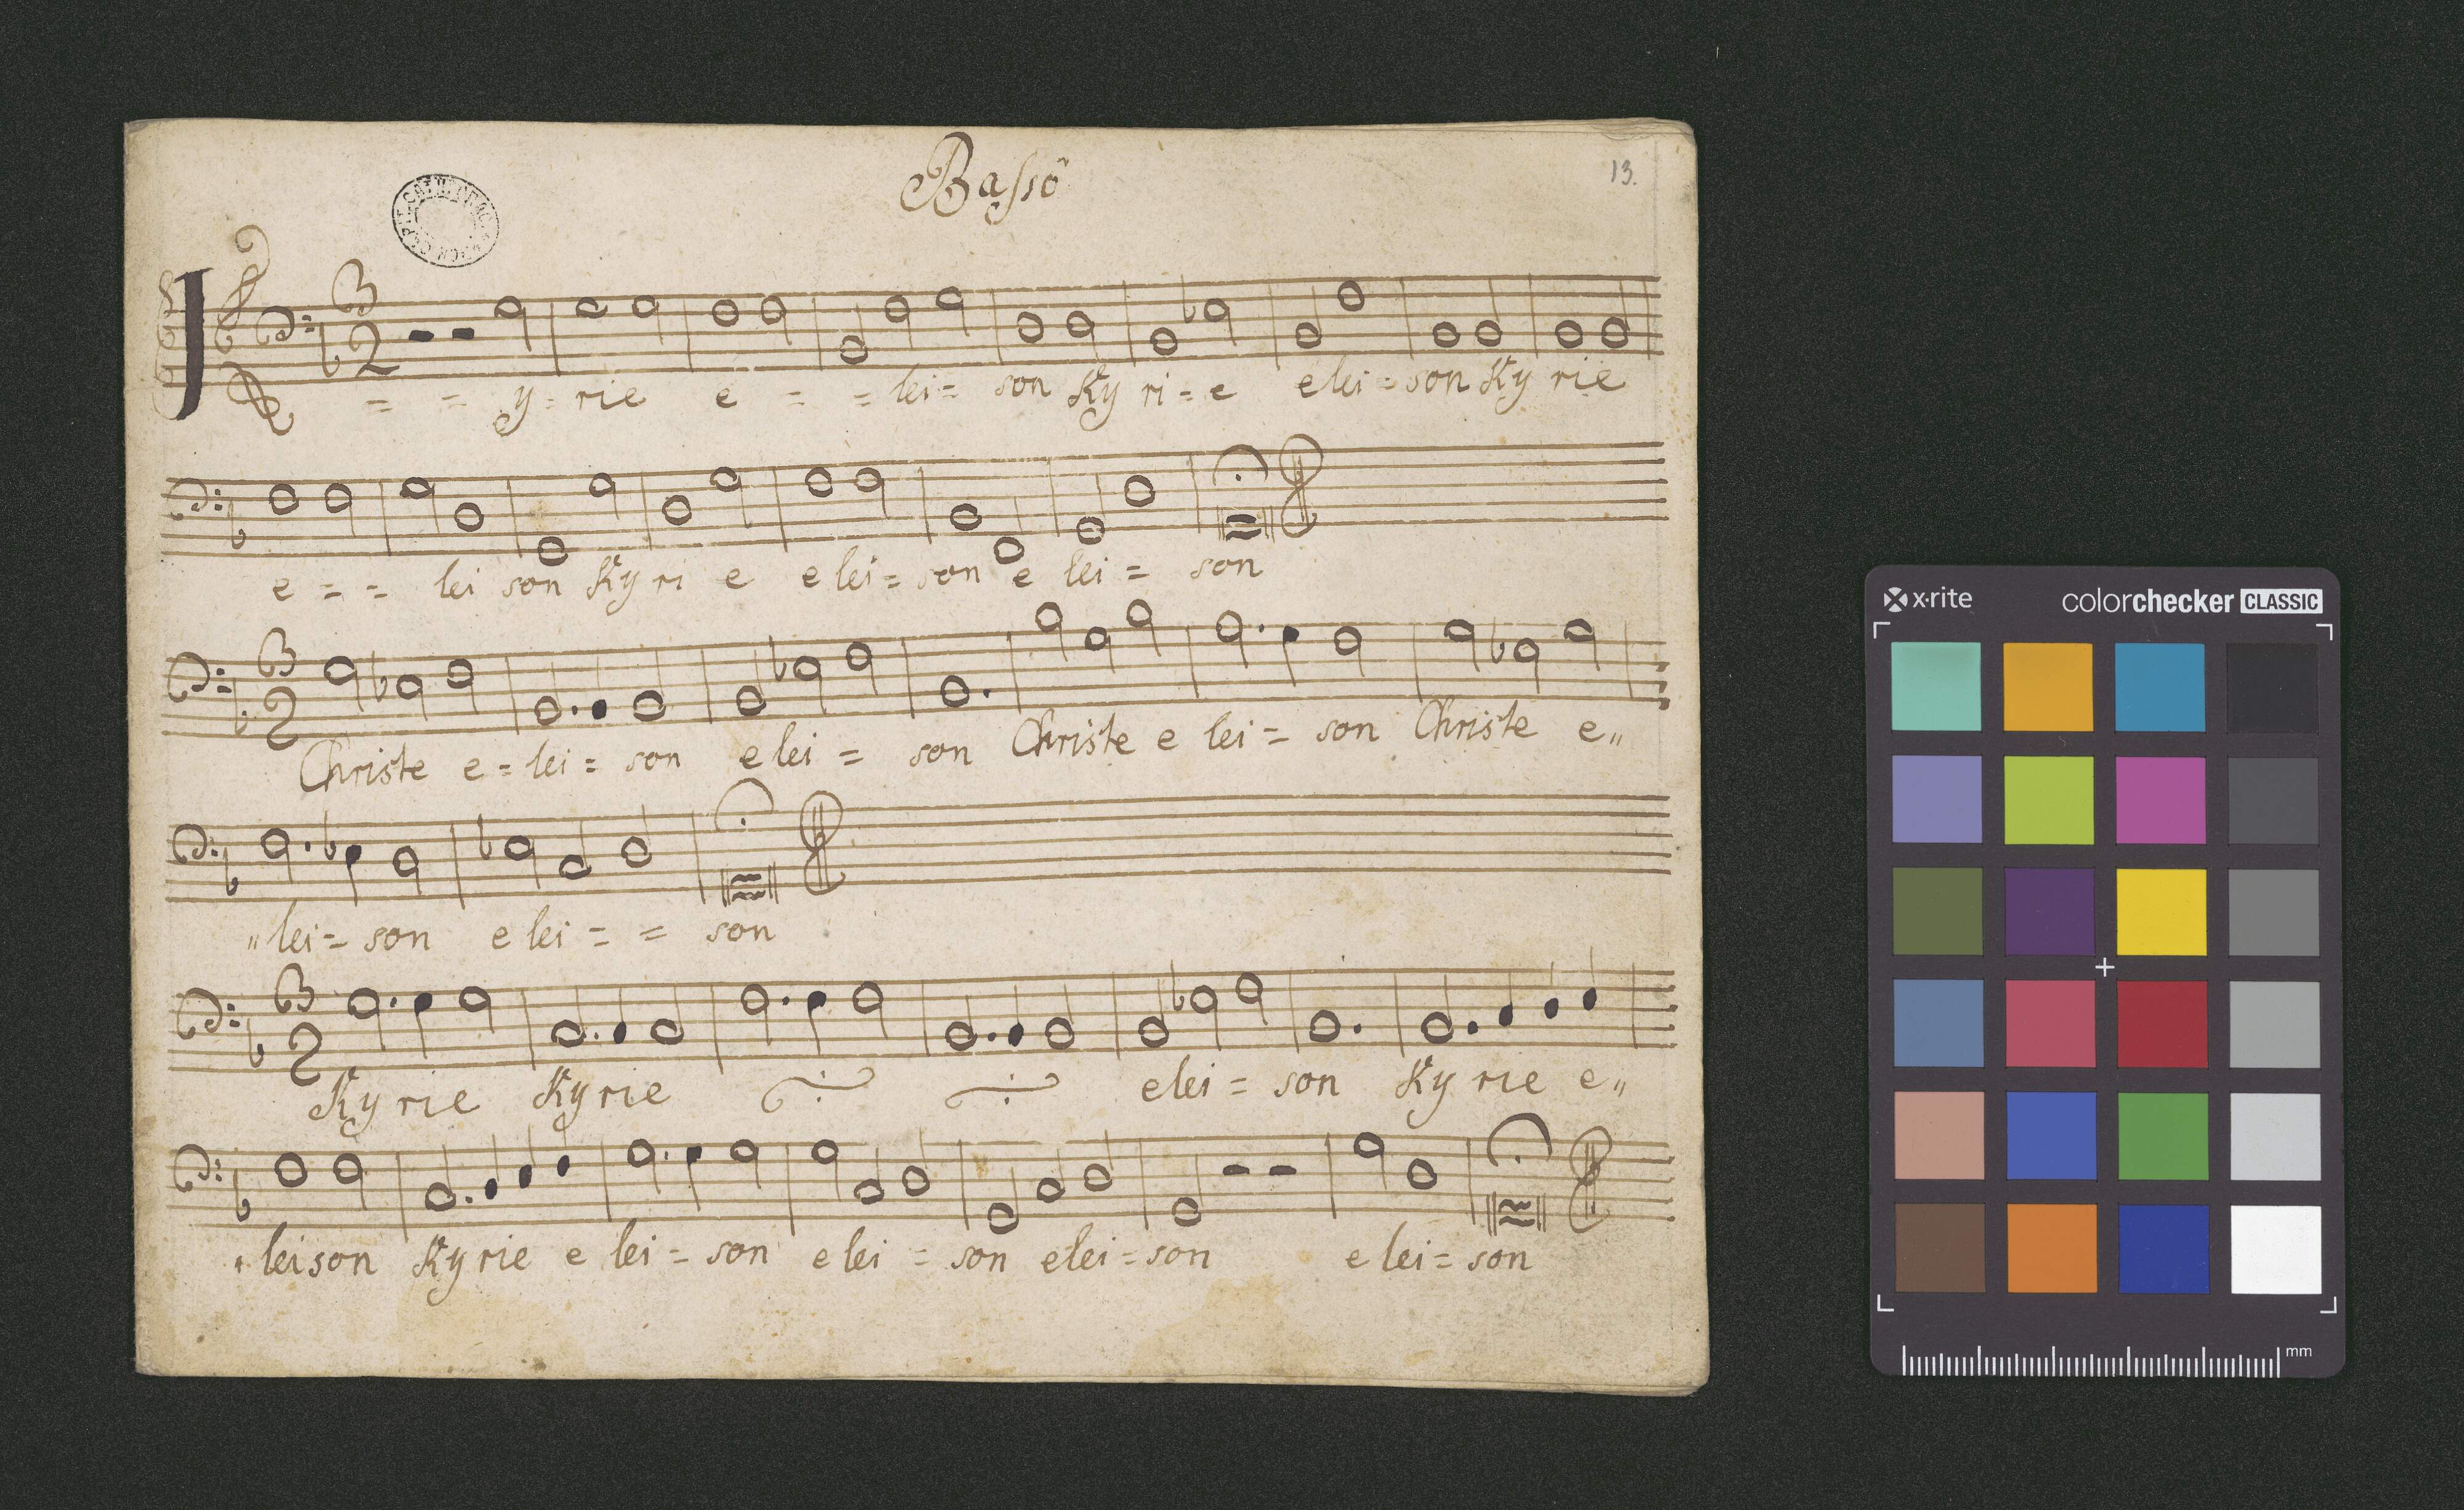 Basso
13.
K = = y = rie e = = lei = son Ky ri = e elei = son Ky rie
e = = lei son Ky ri e e lei = son e lei = son
Christe e = lei = son e lei = son Christe e lei = son Christe e„
„lei = son e lei = = son
Ky rie Ky rie elei = son Ky rie e„
lei son Ky rie e lei = son e lei = son elei = son e lei = son
x·rite colorchecker CLASSIC
mm